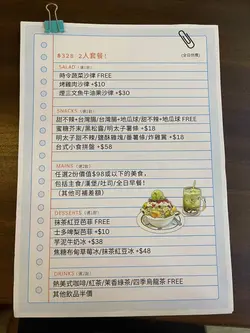 #328：2人套餐！
(全日供應)
SALAD (選1款)
時令蔬菜沙律 FREE
烤雞肉沙律 +$10
煙三文魚牛油果沙律 +$30
SNACKS (選1款)
甜不辣+台灣腸/台灣腸+地瓜球/甜不辣+地瓜球 FREE
蜜糖芥末/黑松露/明太子薯條 +$18
明太子甜不辣/鹽酥雞塊/番薯條/炸雞翼 +$18
台式小食拼盤 +$58
MAINS (選2款)
任選2款價值$98或以下的美食,
包括主食/漢堡/吐司/全日早餐!
(其他可補差額)
DESSERTS (選1款)
抹茶紅豆芭菲 FREE
士多啤梨芭菲 +$10
芋泥牛奶冰 +$38
焦糖布甸草莓冰/抹茶紅豆冰 +$48
DRINKS (選2款)
熱美式咖啡/紅茶/茉香綠茶/四季烏龍茶 FREE
其他飲品半價